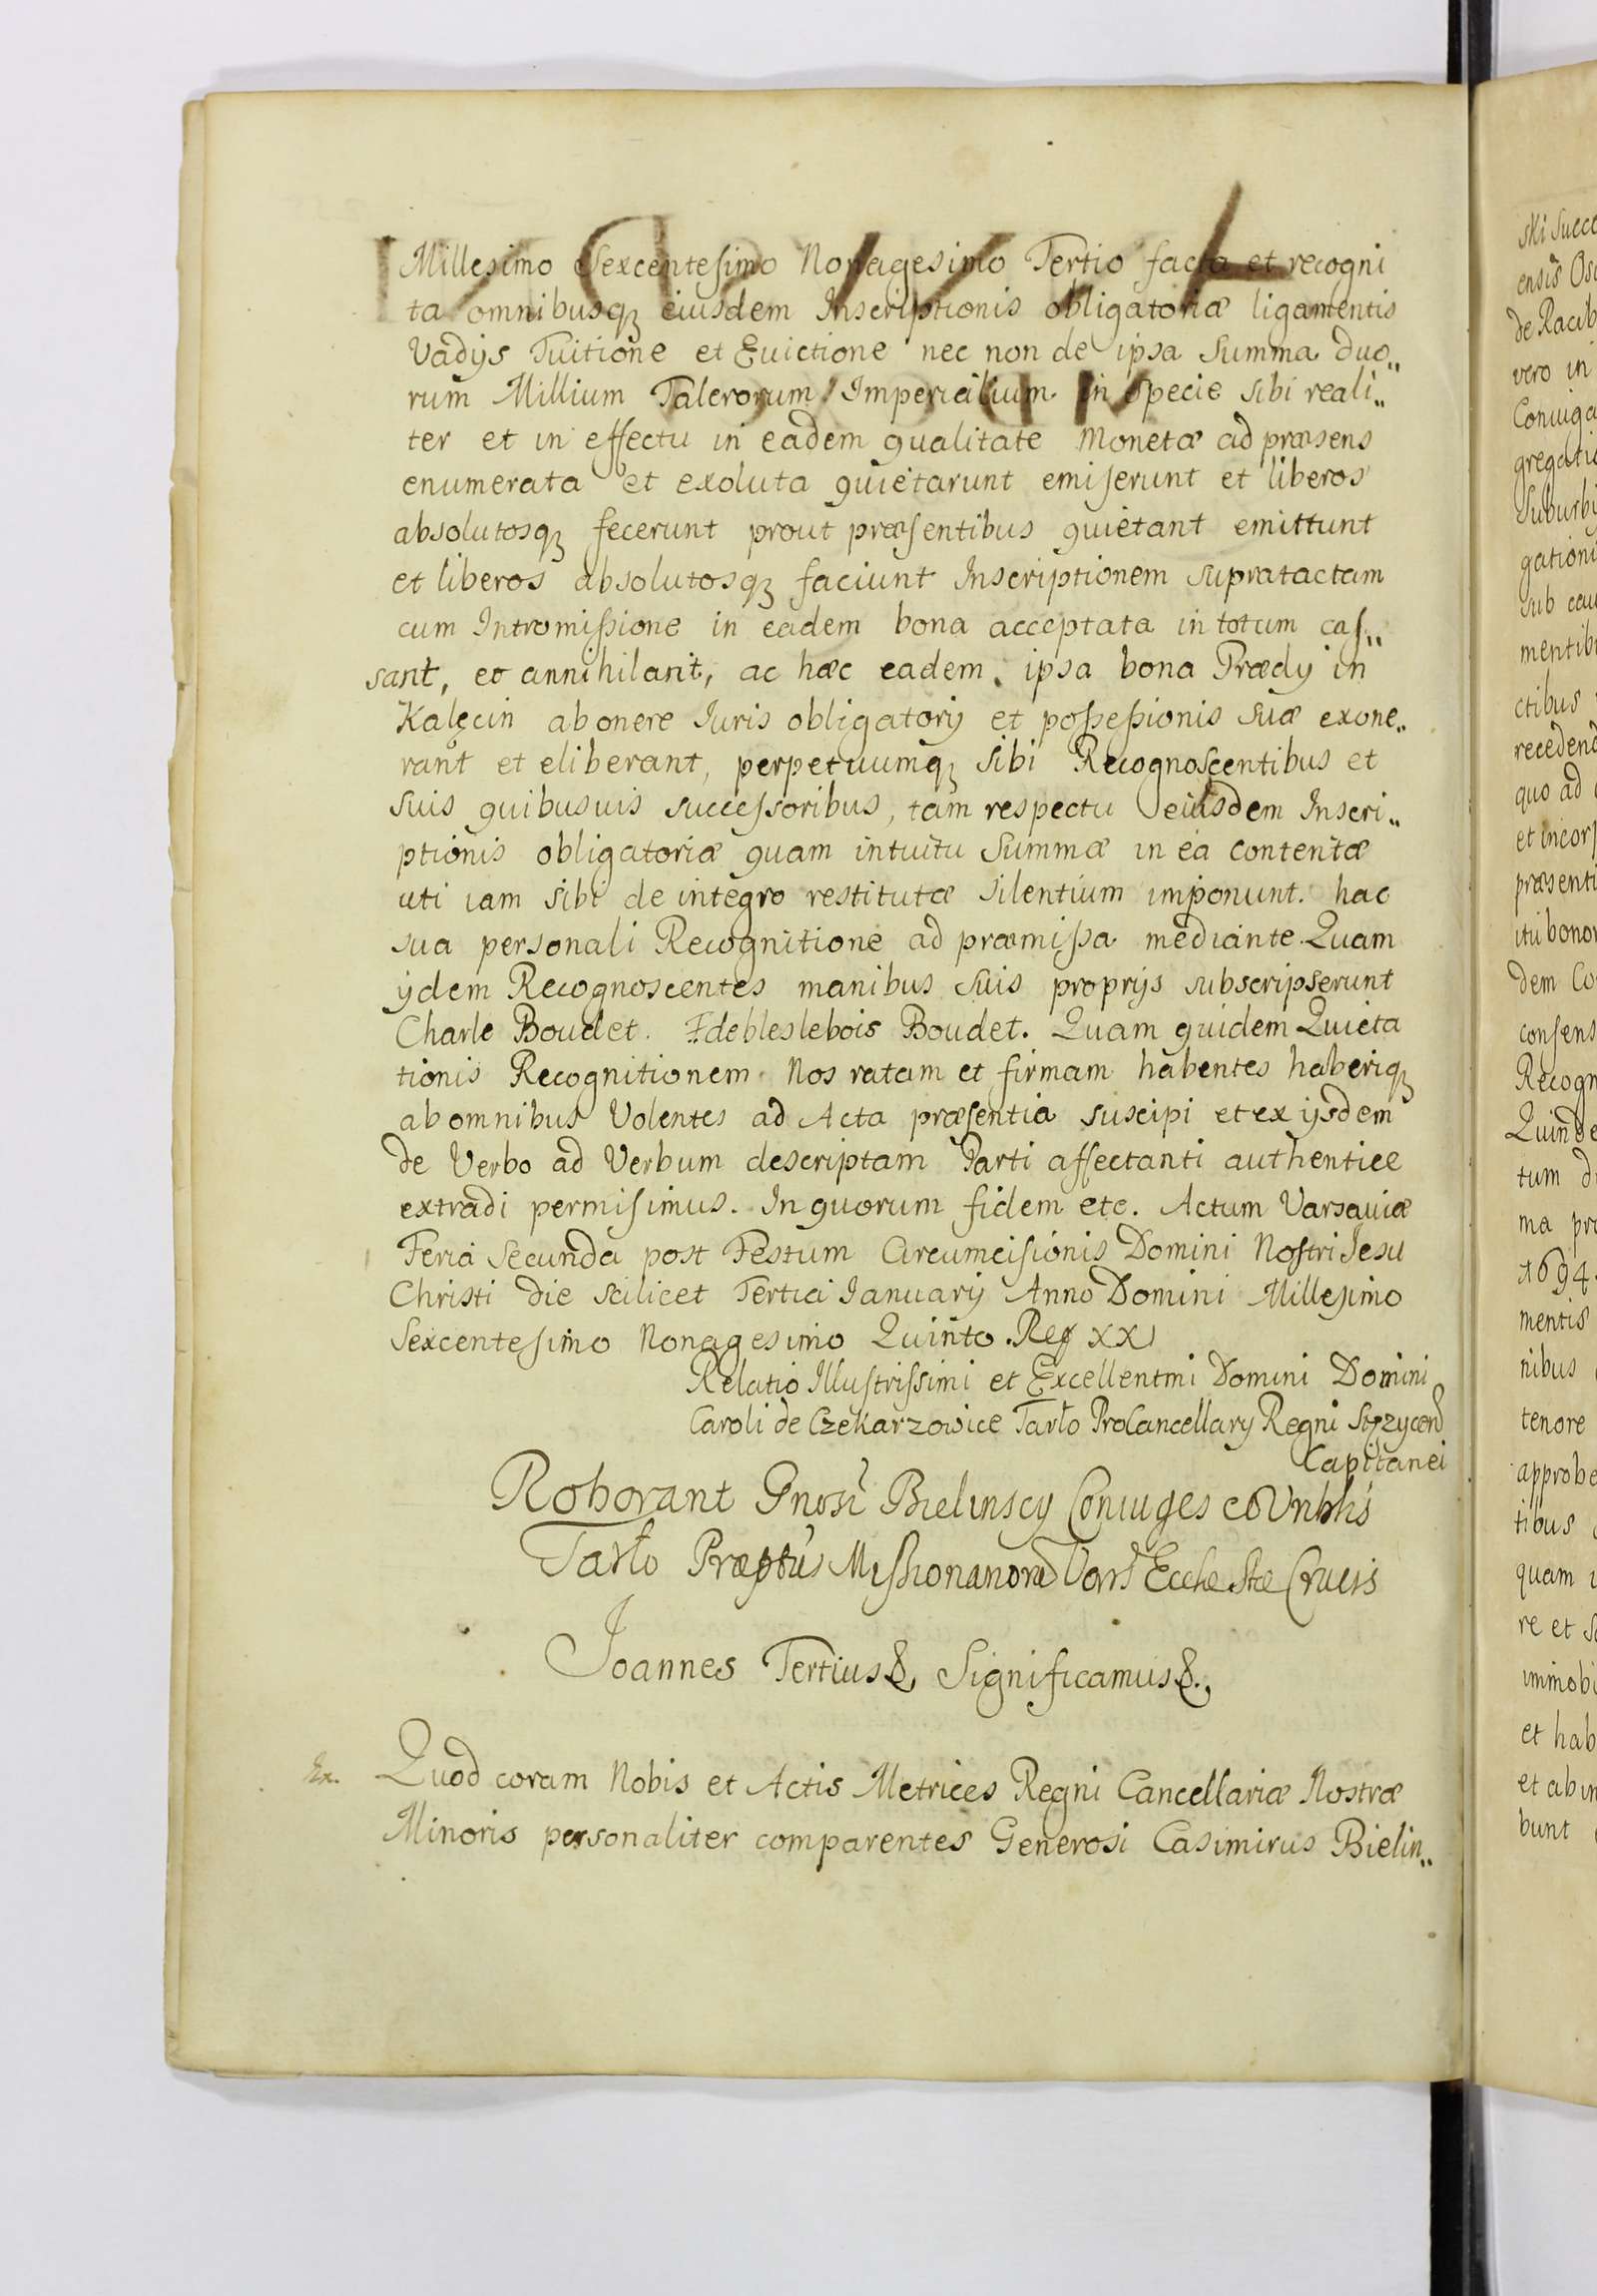 Millesimo Sexcentesimo Nonagesimo Tertio facta et recogni
ta omnibusq; eiusdem Inscriptionis obligatoriæ ligamentis
Vadijs Tuitione et Euictione nec non de ipsa Summa duo„
rum Millium Talerorum Imperialium in specie sibi reali„
ter et in effectu in eadem qualitate Monetæ ad præsens
enumerata et exoluta quietarunt emiserunt et liberos
absolutosq; fecerunt prout præsentibus quietant emittunt
et liberos absolutosq; faciunt Inscriptionem supratactam
cum Intromissione in eadem bona acceptata in totum cas„
sant, et annihilant, ac hæc eadem ipsa bona Prædij in
Kalęcin ab onere Iuris obligatorij et possessionis suæ exone„
rant et eliberant, perpetuumq; sibi Recognoscentibus et
suis quibusuis successoribus, tam respectu eiusdem Inscri„
ptionis obligatoriæ quam intuitu Summæ in ea contentæ
uti iam sibi de integro restitutæ silentium imponunt. hac
sua personali Recognitione ad præmissa mediante. Quam
ijdem Recognoscentes manibus suis proprijs subscripserunt
Charle Boudet. Fdebleslebois Boudet. Quam quidem Quieta
tionis Recognitionem Nos ratam et firmam habentes haberiq;
ab omnibus Volentes ad Acta præsentia suscipi et ex ijsdem
de Verbo ad Verbum descriptam Parti affectanti authentice
extradi permisimus. In quorum fidem etc. Actum Varsaviæ
Feria Secunda post Festum Circumcisionis Domini Nostri Jesu
Christi die scilicet Tertia Ianuarij Anno Domini Millesimo
Sexcentesimo Nonagesimo Quinto. Reg XXI
Relatio Illustrissimi et Excellentmi Domini Domini
Caroli de Czekarzowice Tarło ProCancellarij Regni
Capitanei
Roborant Gnosi Bielinscy Coniuges
Tarło Missionariorũ Vars Ecclæ Stæ Crucis
Joannes Tertius &, Significamus &.,
Ex.
Quod coram Nobis et Actis Metrices Regni Cancellariæ Nostræ
Minoris personaliter comparentes Generosi Casimirus Bielin„